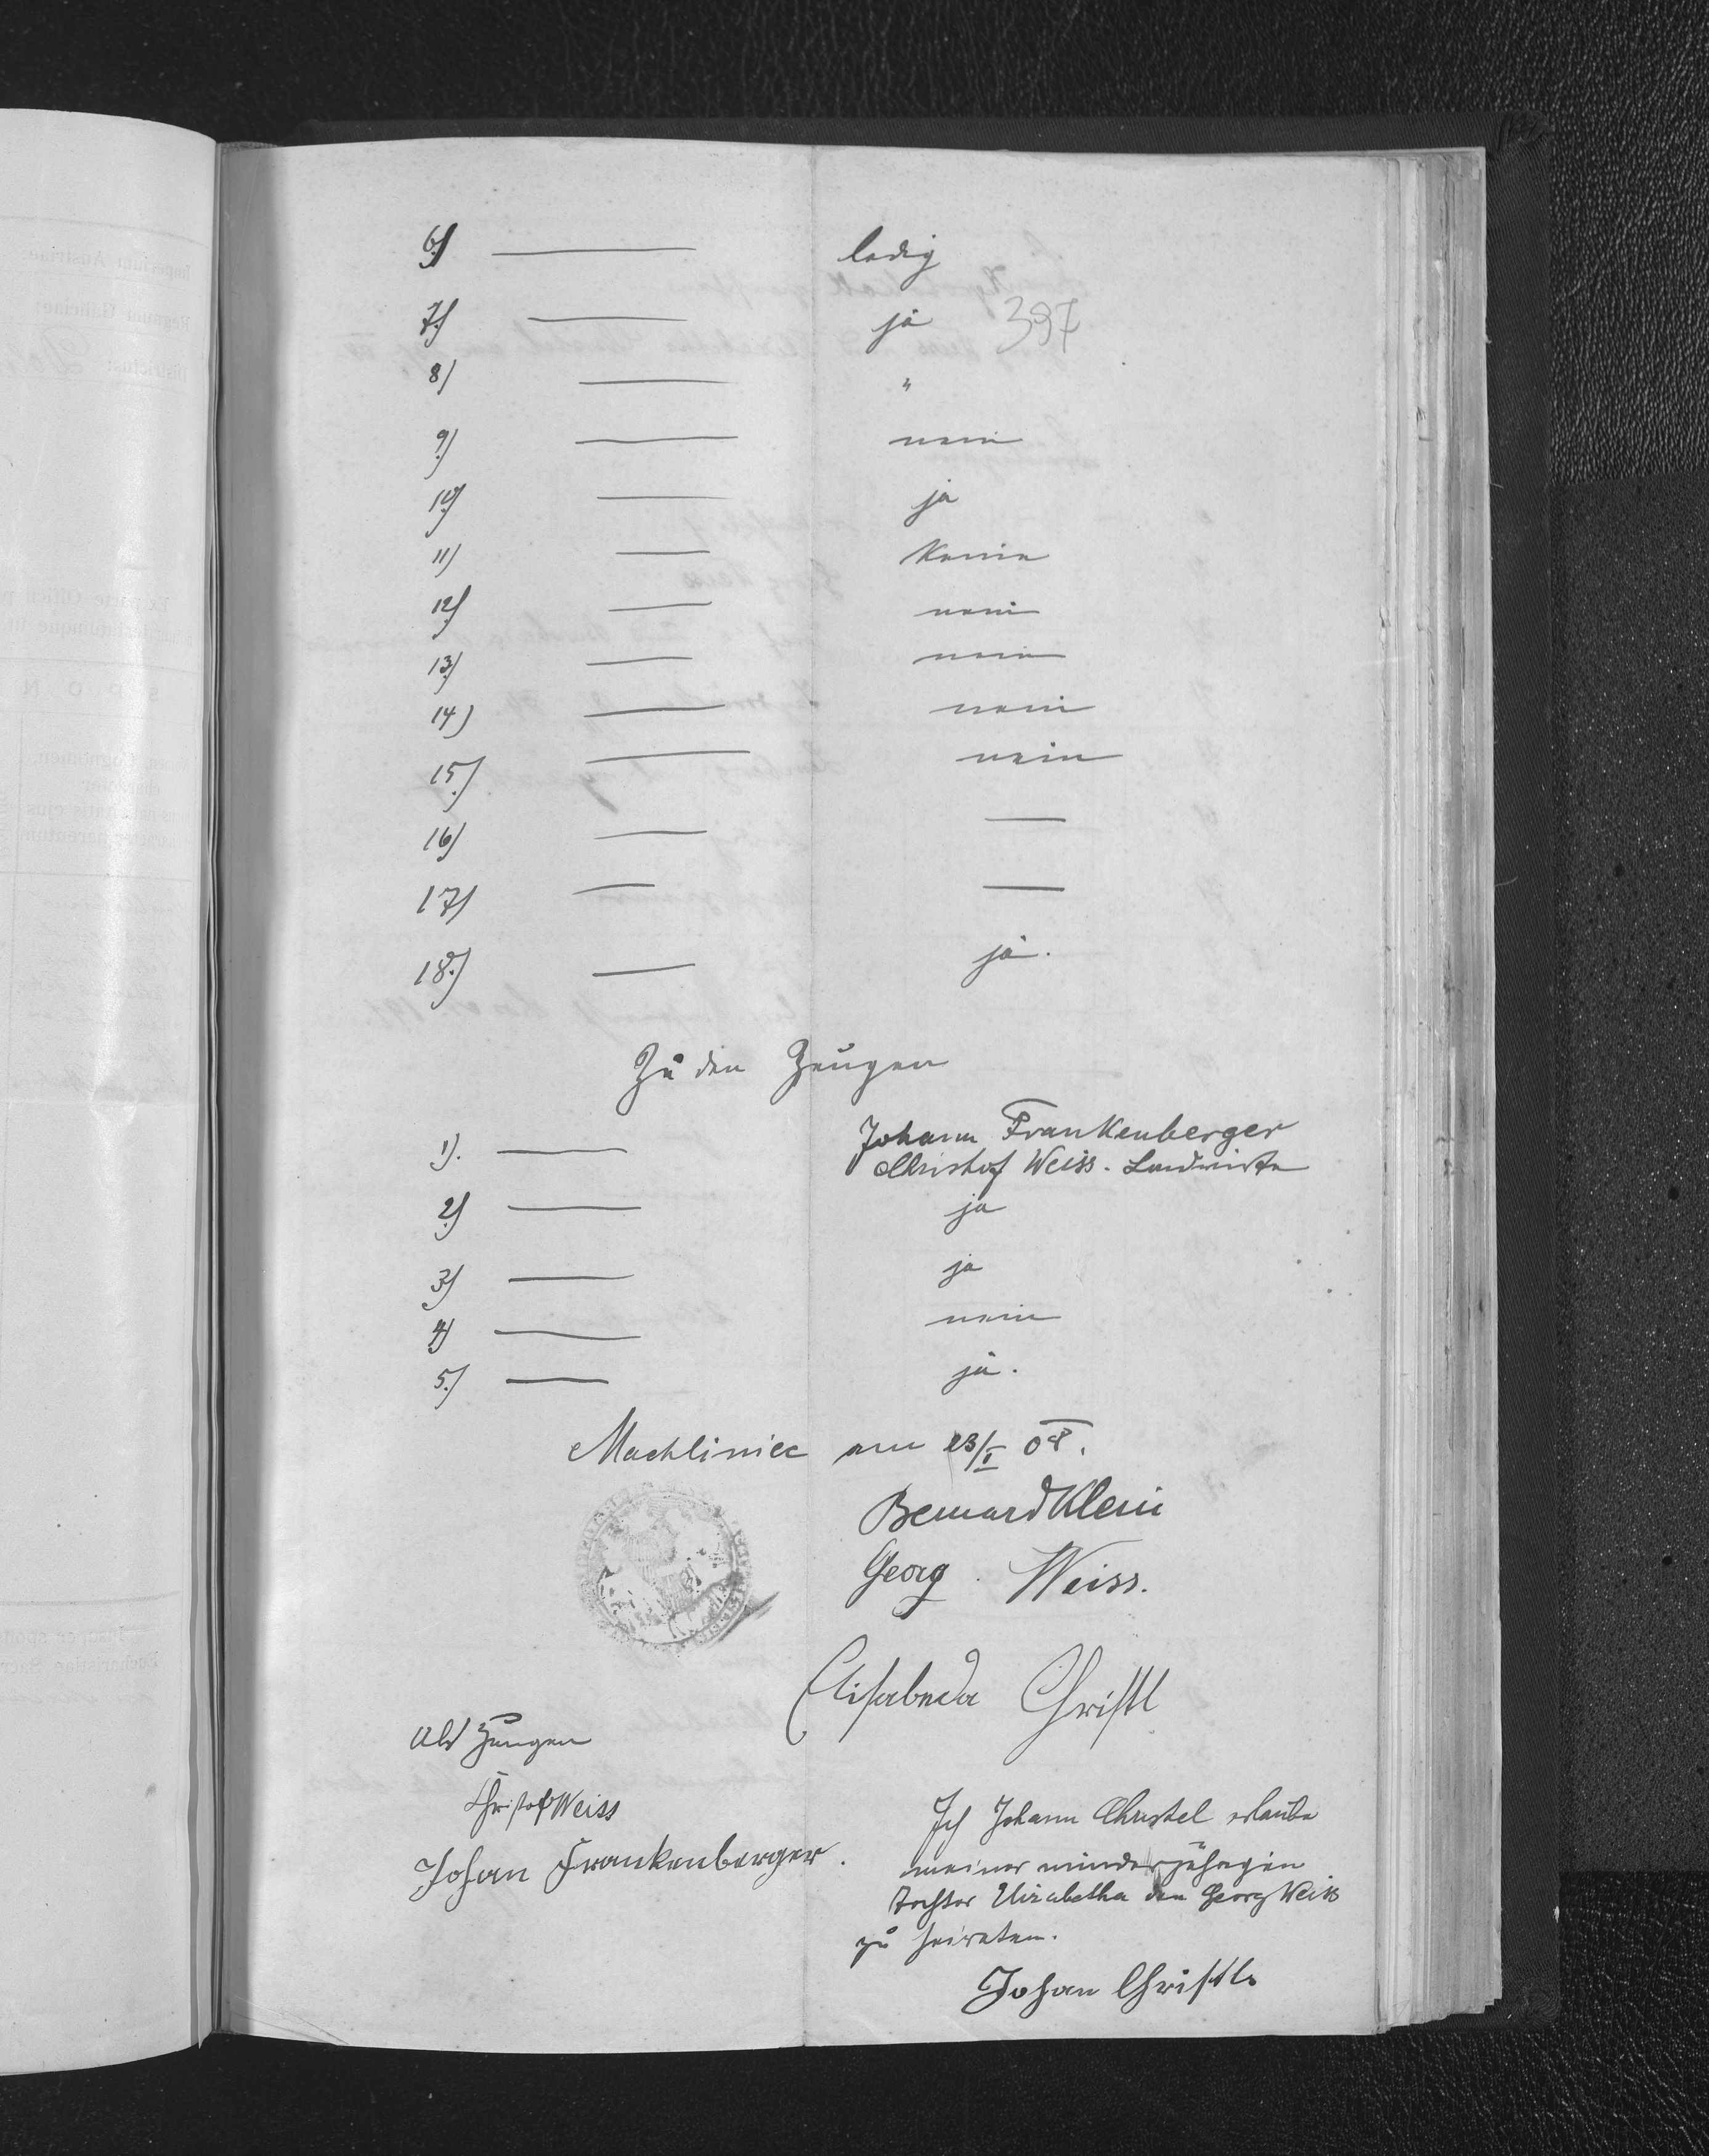 6.) ledig
7.) ja 397
8) "
9.) nein
10.) ja
11) Keine
12.) nein
13.) nein
14) nein
15.) nein
16)
17)
18.) ja.
Zu den Zeugen
1). Johann Frankenberger
Christof Weiss. Landwirte
2.) ja
3.) ja
4.) nein
5.) ja.
Machliniec am 23/I 08.
Bernard Klein
Georg Weiss.
Elisabeda Christl
Als Zeugen
Christof Weiss
Johan Frankenberger.
Ich Johann Christel erlaube
meiner minderjährigen
Tochter Elizabetha den Georg Weiss
zu heiraten.
Johan Christl